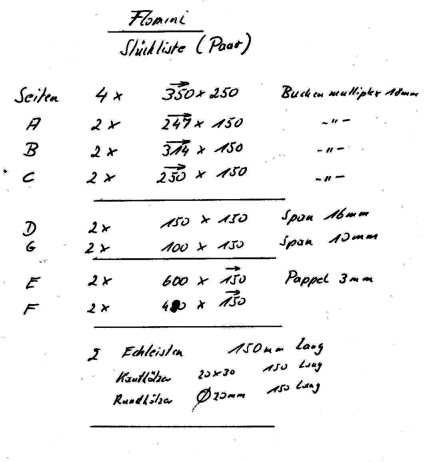 Flomini
Stückliste (Paar)
Seiten 4 x 350 x 250 Buchen multiplex 18mm
A 2 x 247 x 150 -"-
B 2 x 314 x 150 -"-
C 2 x 250 x 150 -"-
D 2x 150 x 150 Span 16mm
G 2x 100 x 150 Span 10mm
E 2x 600 x 150 Pappel 3mm
F 2x x 150
2 Eckleisten 150mm lang
Kanthölzer 20x30 150 lang
Rundhölzer Ø20mm 150 lang